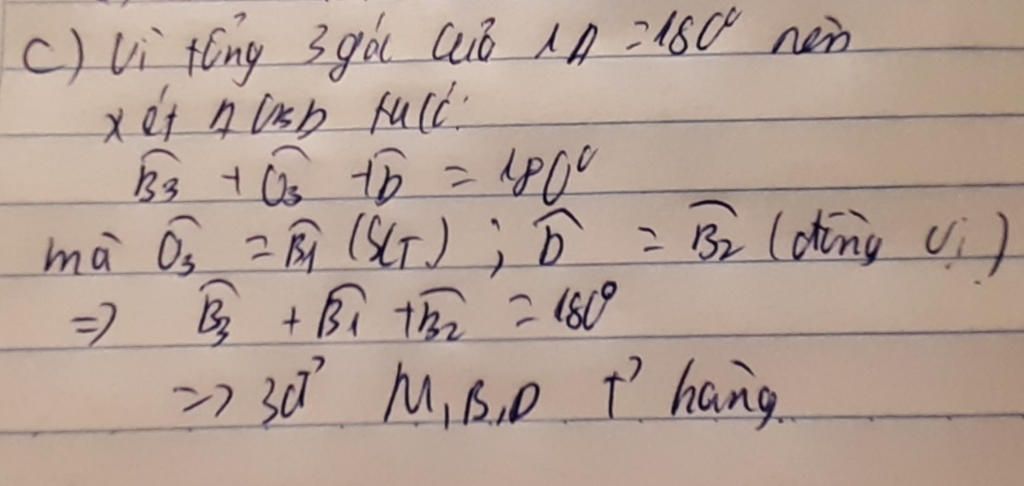 c) Vì tổng 3 góc của 1 Δ = 180° nên
xét Δ OBD ta có:
B̂3 + Ô3 + D̂ = 180°
mà Ô3 = B̂1 (SLT) ; D̂ = B̂2 (đồng vị)
=> B̂3 + B̂1 + B̂2 = 180°
=> 3đ' M, B, D t' hàng